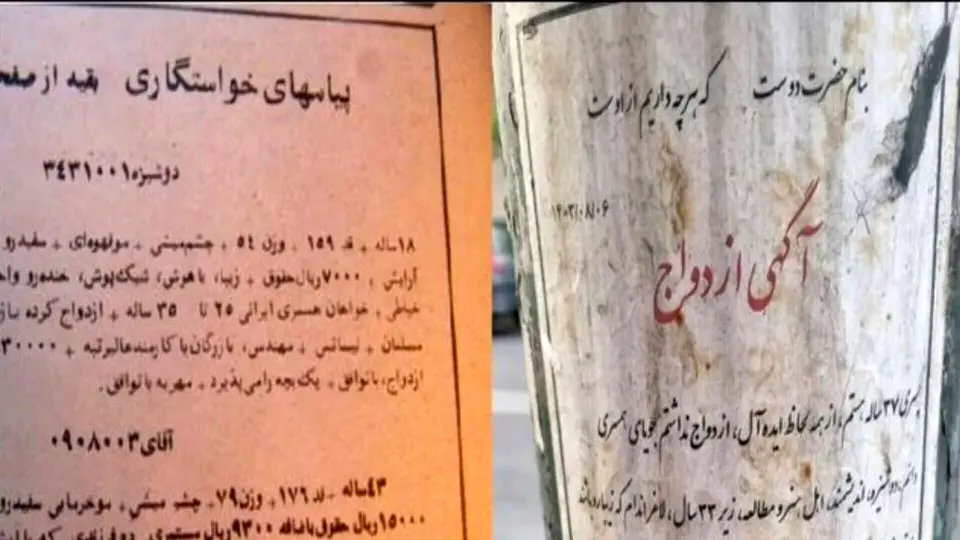 پیامهای خواستگاری بقیه از صفحه
دوشیزه ۳۴۳۱۰۰۱
۱۸ ساله + قد ۱۵۹ + وزن ۵۴ + چشم میشی + موقهوه‌ای + سفیدرو
آرایش + ۷۰۰۰ ریال حقوق + زیبا، باهوش، شیک‌پوش، خنده‌رو
خیاطی + خواهان همسری ایرانی ۲۵ تا ۳۵ ساله + ازدواج کرده یا
مسلمان + لیسانس + مهندس، بازرگان یا کارمند عالیرتبه + ۳۰۰۰۰
ازدواج، با توافق + یک بچه را می‌پذیرد + مهریه با توافق.
آقای ۰۹۰۸۰۰۳
۴۳ ساله + قد ۱۷۶ + وزن ۷۹ + چشم میشی + موخرمایی + سفیدرو
۱۵۰۰۰ ریال حقوق باضافه ۹۳۰۰ ریال مستمری
بنام حضرت دوست که هرچه داریم از اوست
۱۴۰۳/۰۸/۰۶
آگهی ازدواج
پسری ۳۷ ساله هستم، از همه لحاظ ایده‌آل، ازدواج نداشتم جویای همسری
دائم، دوشیزه، اندیشمند، اهل هنر و مطالعه، زیر ۳۳ سال، لاغر اندام که زیبا رو باشد